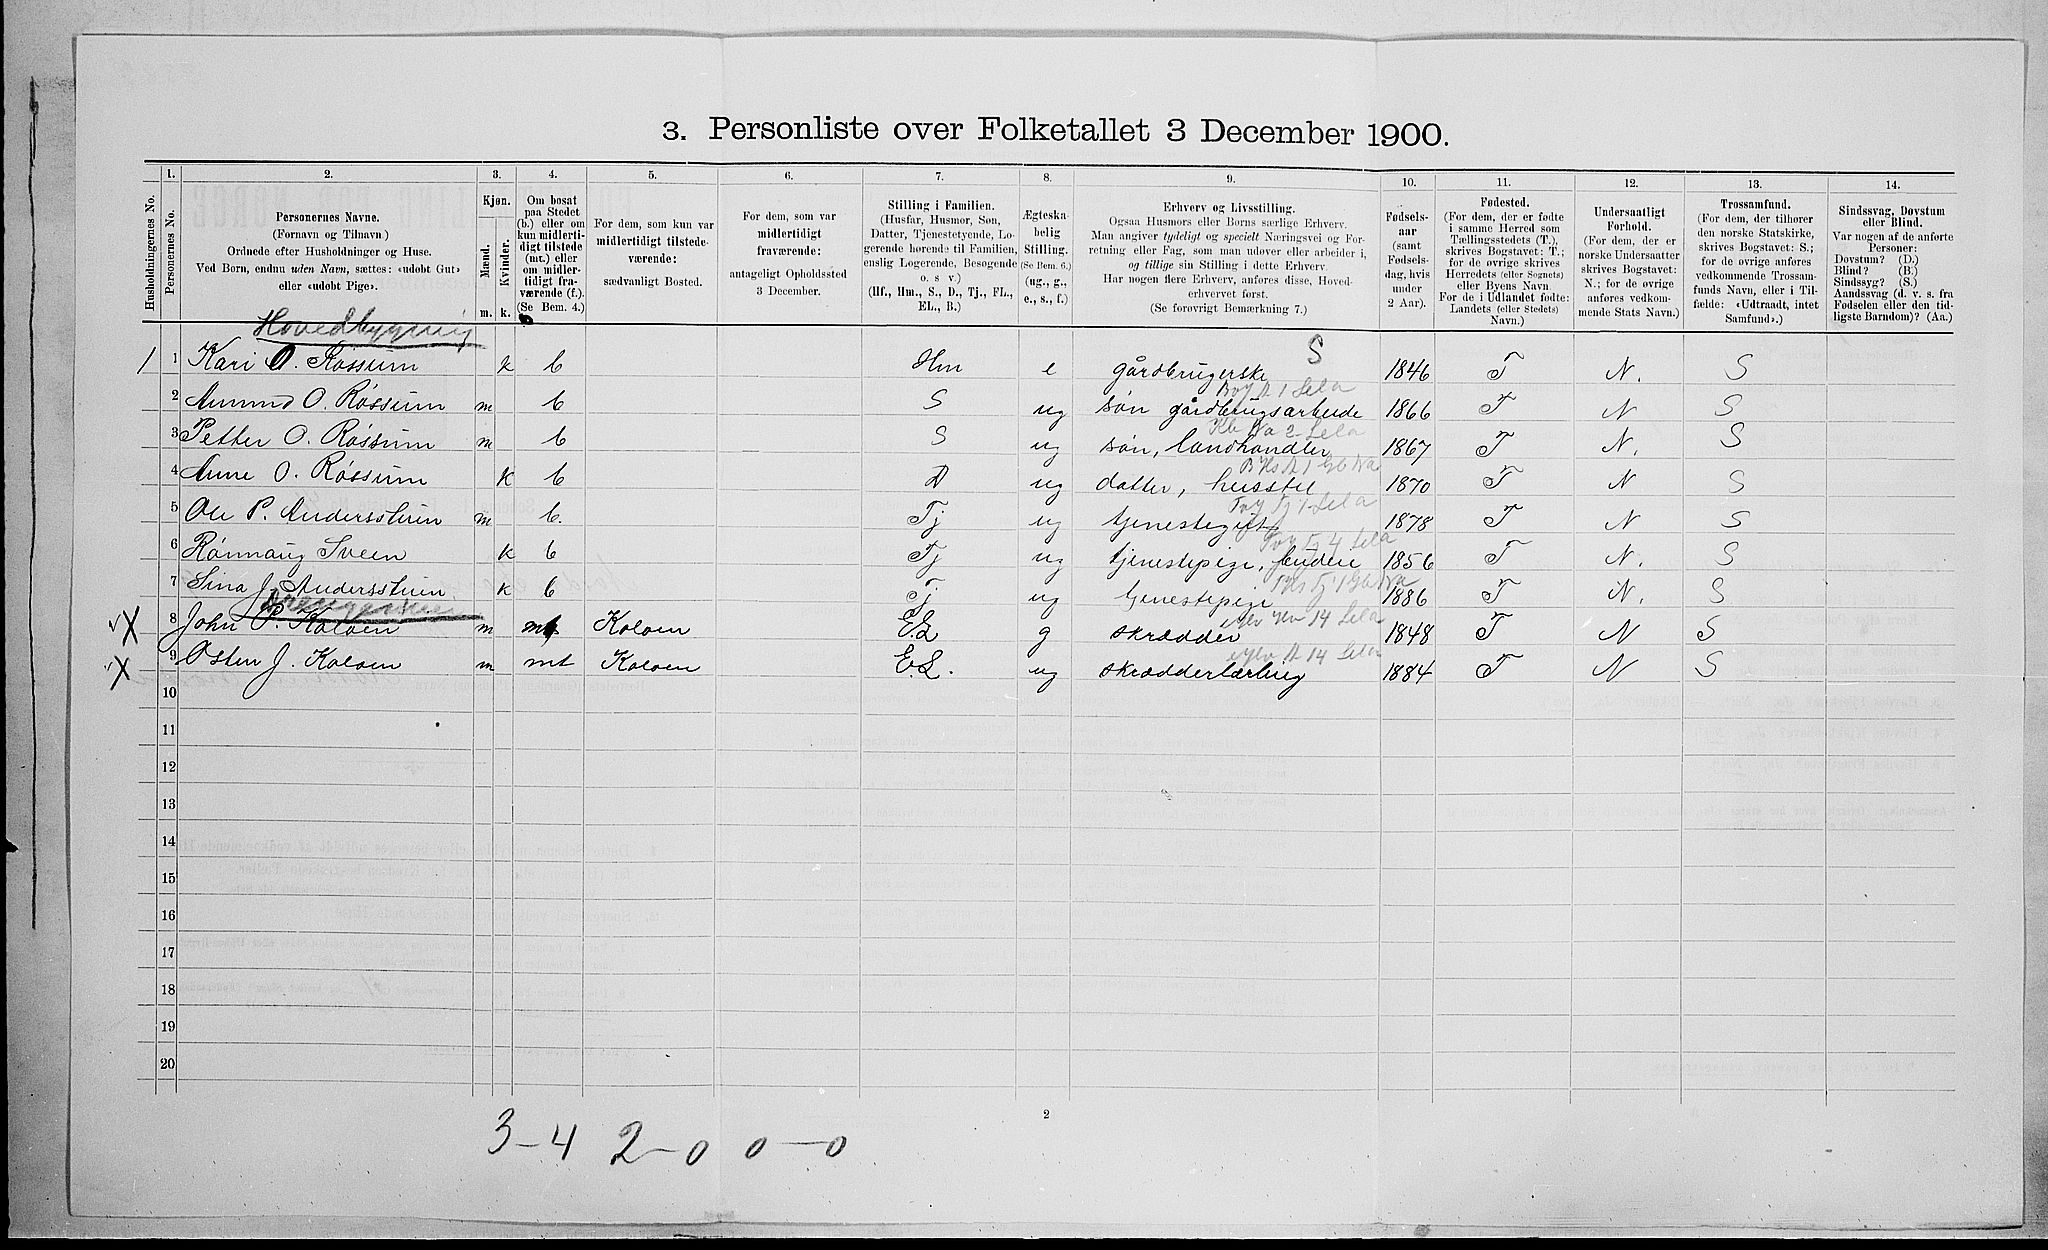 3. Personliste over Folketallet 3 December 1900.
1. 2. 3. 4. 5. 6. 7. 8. 9. 10. 11. 12. 13. 14.
Husholdningernes No.
Personernes No.
Personernes Navne.
(Fornavn og Tilnavn)
Ordnede efter Husholdninger og Huse.
Ved Børn, endnu uden Navn, sættes: «udøbt Gut»
eller «udøbt Pige».
Kjøn.
Mænd.
Kvinder.
m. k.
Om bosat
paa Stedet
(b.) eller om
kun midlerti-
digt tilstede
(mt.) eller
om midler-
tidigt fra-
værende (f.).
(Se Bem. 4.)
For dem, som kun var
midlertidigt tilstede-
værende:
sædvanligt Bosted.
For dem, som var
midlertidigt
fraværende:
antageligt Opholdssted
3 December.
Stilling i Familien.
(Husfar, Husmor, Søn,
Datter, Tjenestetyende, Lo-
gerende hørende til Familien,
enslig Logerende, Besøgende
o. s v.)
(Hf., Hm., S., D., Tj., FL.,
EL., B.)
Ægteska-
belig
Stilling.
(Se Bem. 6.)
(ug., g.,
e., s., f.)
Erhverv og Livsstilling.
Ogsaa Husmors eller Børns særlige Erhverv.
Man angiver tydeligt og specielt Næringsvei og For-
retning eller Fag, som man udøver eller arbeider i,
og tillige sin Stilling i dette Erhverv.
Har nogen flere Erhverv, anføres disse, Hoved-
erhvervet først.
(Se forøvrigt Bemærkning 7.)
Fødsels-
aar
(samt
Fødsels-
dag, hvis
under
2 Aar).
Fødested.
(For dem, der er fødte
i samme Herred som
Tællingsstedets (T.),
skrives Bogstavet: T.;
for de øvrige skrives
Herredets (eller Sognets)
eller Byens Navn.
For de i Udlandet fødte:
Landets (eller Stedets)
Navn.)
Undersaatligt
Forhold.
(For dem, der er
norske Undersaatter
skrives Bogstavet:
N.; for de øvrige
anføres vedkom-
mende Stats Navn.)
Trossamfund.
(For dem, der tilhører
den norske Statskirke,
skrives Bogstavet: S.;
for de øvrige anføres
vedkommende Trossam-
funds Navn, eller i Til-
fælde: «Udtraadt, intet
Samfund».)
Sindssvag, Døvstum
eller Blind.
Var nogen af de anførte
Personer:
Døvstum? (D.)
Blind? (B.)
Sindssyg? (S.)
Aandssvag (d. v. s. fra
Fødselen eller den tid-
ligste Barndom)? (Aa.)
Hovedbygning
S
1 1 Kari O. Røssum k b Hm e gårdbrugerske 1846 T N. S
2 Amund O. Røssum m b S ug søn gårdbrugsarbeide 1866 T N S
3 Petter O. Røssum m b S ug søn, landhandler 1867 T N. S
4 Anne O. Røssum k b D ug datter, husstel 1870 T N S
5 Ole P. Andersstuen m b. Tj ug tjenestegut 1878 T N S
6 Rønnaug Sveen k b Tj ug tjenestepige, budeie 1856 T N. S
7 Sina J. Andersstuen k b Tj ug tjenestepige 1886 T N. S
X 8 John P. Koloen m mt Koloen E.L g skrædder 1848 T N S
X 9 Østen J. Koloen m mt Koloen E.L. ug skrædderlærling 1884 T N S
10
11
12
13
14
15
16
17
18
19
20
2
3-4 2-0 0-0